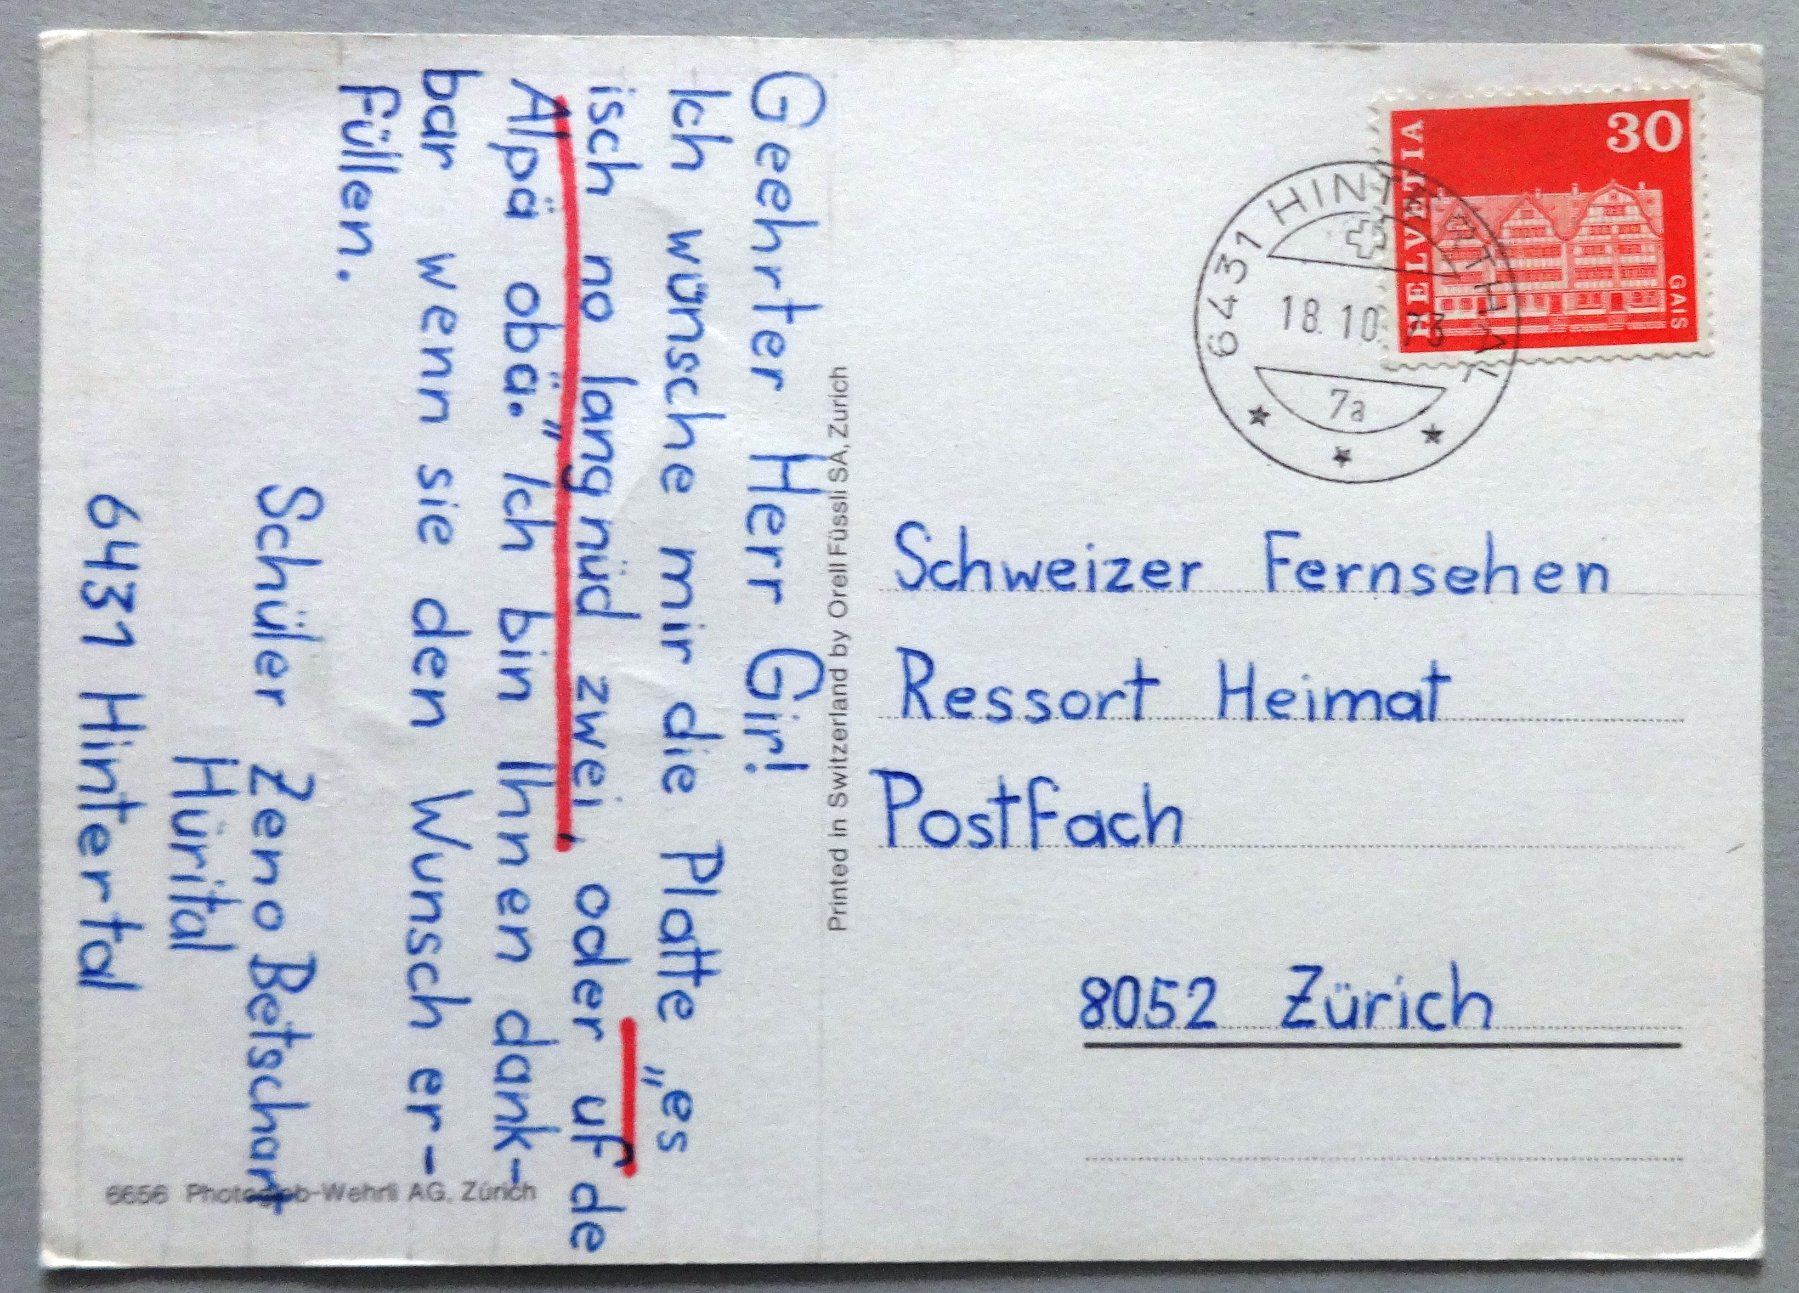 Geehrter Herr Gir!
Ich wünsche mir die Platte „es
isch no lang nüd zwei, oder uf de
Alpä obä.“ Ich bin Ihnen dank-
bar wenn sie den Wunsch er-
füllen.
Schüler Zeno Betschart
Hürital
6431 Hintertal
6656 Photoglob-Wehrli AG, Zürich
Printed in Switzerland by Orell Füssli SA, Zurich
HELVETIA
30
GAIS
6431 HINTERTHAL
18.10.73
7a
Schweizer Fernsehen
Ressort Heimat
Postfach
8052 Zürich